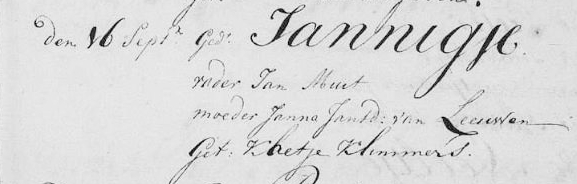 den 16 Septr. Ged. Jannigje.
vader Jan Muit
moeder Janna Jansd: van Leeuwen
Get: Khetje Klimmers.